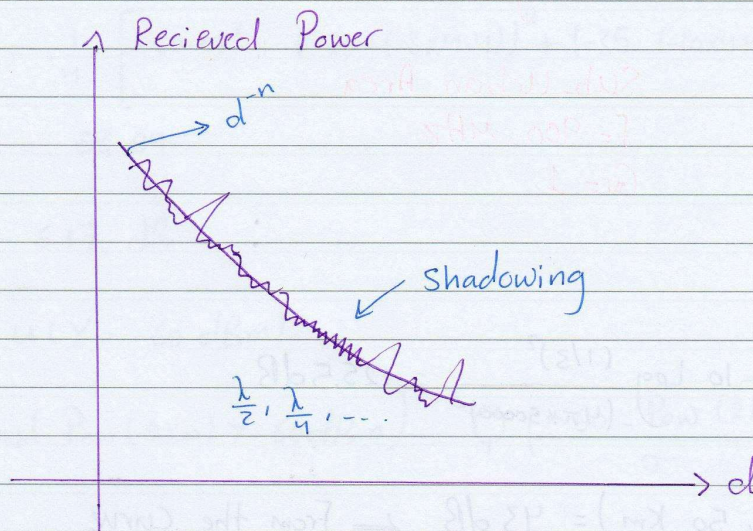 Recieved Power
d⁻ⁿ
Shadowing
λ/2, λ/4, ---
d